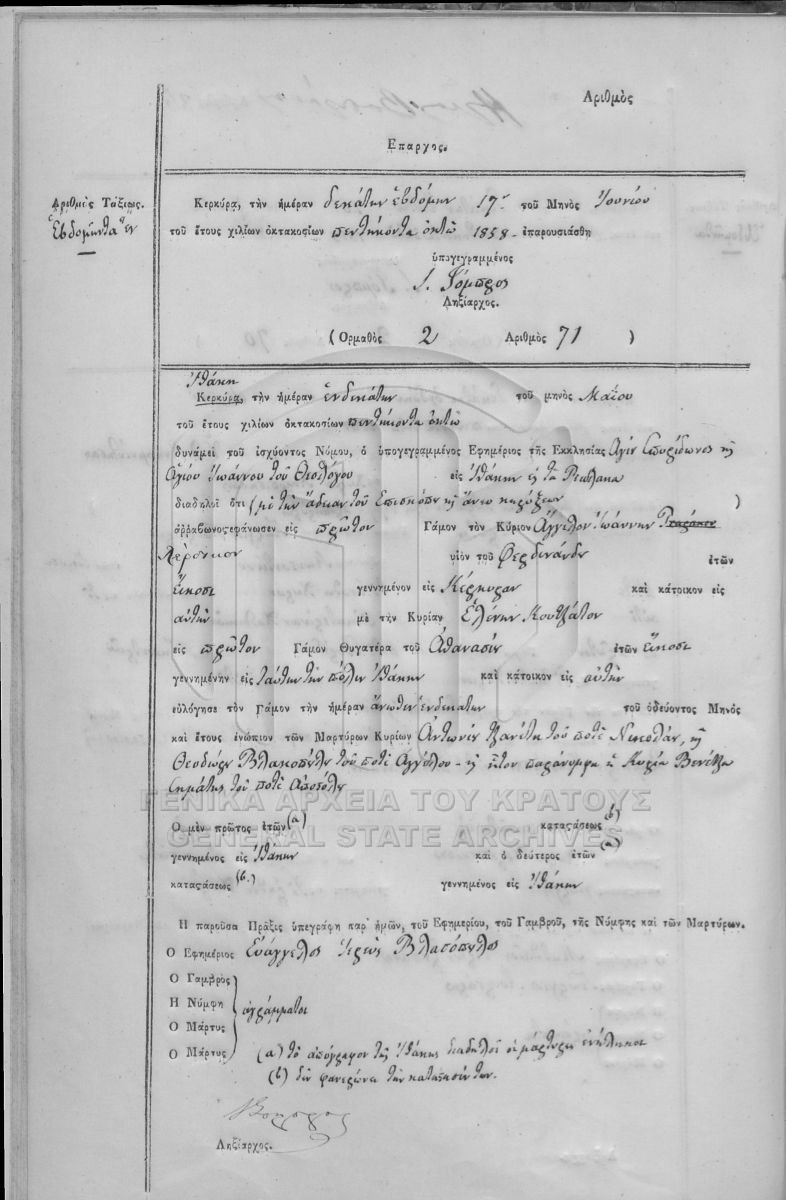 Αριθμὸς
Επαρχος.
Αριθμὸς Τάξεως.
Ἑβδομῆντα ἓν
Κερκύρα, τὴν ἡμέραν δεκάτην ἑβδόμην 17ην τοῦ Μηνὸς Ἰουνίου
τοῦ ἔτους χιλίων ὀκτακοσίων πεντήκοντα ὀκτὼ 1858 - ἐπαρουσιάσθη
ὑπογεγραμμένος
Ληξίαρχος.
(Ορμαθὸς 2 Αριθμὸς 71 )
Ἰθάκη
Κερκύρα, τὴν ἡμέραν ἑνδεκάτην τοῦ μηνὸς Μαΐου
τοῦ ἔτους χιλίων ὀκτακοσίων πεντήκοντα ὀκτὼ
δυνάμει τοῦ ἰσχύοντος Νόμου, ὁ ὑπογεγραμμένος Εφημέριος τῆς Εκκλησίας Ἁγίου Σπυρίδωνος καὶ
Ἁγίου Ἰωάννου τοῦ Θεολόγου εἰς Ἰθάκην
διαδηλοῖ ὅτι (μὲ τὴν ἄδειαν τοῦ Ἐπισκόπου καὶ ἄνευ κηρύξεων )
ἀρραβωνοςεφάνωσεν εἰς πρῶτον Γάμον τὸν Κύριον Ἄγγελον Ἰωάννην
υἱὸν τοῦ Φερδινάνδου ἐτῶν
εἴκοσι γεννημένον εἰς Κέρκυραν καὶ κάτοικον εἰς
αὐτὴν μὲ τὴν Κυρίαν Ἑλένην
εἰς πρῶτον Γάμον Θυγατέρα τοῦ Ἀθανασίου ἐτῶν εἴκοσι
γεννημένην εἰς ταύτην τὴν πόλιν Ἰθάκην καὶ κάτοικον εἰς αὐτὴν
εὐλόγησε τὸν Γάμον τὴν ἡμέραν ἄνωθεν ἑνδεκάτην τοῦ ὁδεύοντος Μηνὸς
καὶ ἔτους ἐνώπιον τῶν Μαρτύρων Κυρίων Ἀντωνίου τοῦ ποτὲ Νικολάου, καὶ
Θεοδώρου Βλασοπούλου τοῦ ποτὲ Ἀγγέλου - καὶ ἦτον παράνυμφα ἡ Κυρία
τοῦ ποτὲ Ἀποστόλου
ΓΕΝΙΚΑ ΑΡΧΕΙΑ ΤΟΥ ΚΡΑΤΟΥΣ
GENERAL STATE ARCHIVES
Ο μὲν πρῶτος ἐτῶν (α) καταςάσεως (β)
γεννημένος εἰς Ἰθάκην καὶ ὁ δεύτερος ἐτῶν (α)
καταςάσεως (β.) γεννημένος εἰς Ἰθάκην
Η παροῦσα Πρᾶξις ὑπεγράφη παρ' ἡμῶν, τοῦ Εφημερίου, τοῦ Γαμβροῦ, τῆς Νύμφης καὶ τῶν Μαρτύρων.
Ο Εφημέριος Εὐάγγελος Ἱερεὺς Βλασόπουλος
Ο Γαμβρὸς
Η Νύμφη ἀγράμματοι
Ο Μάρτυς
Ο Μάρτυς (α) τὸ ἀπόγραφον τῆς Ἰθάκης διαδηλοῖ οἱ μάρτυρες ἐνήλικοι
(β) δὲν φανερώνει τὴν κατάστασίν των.
Ληξίαρχος.